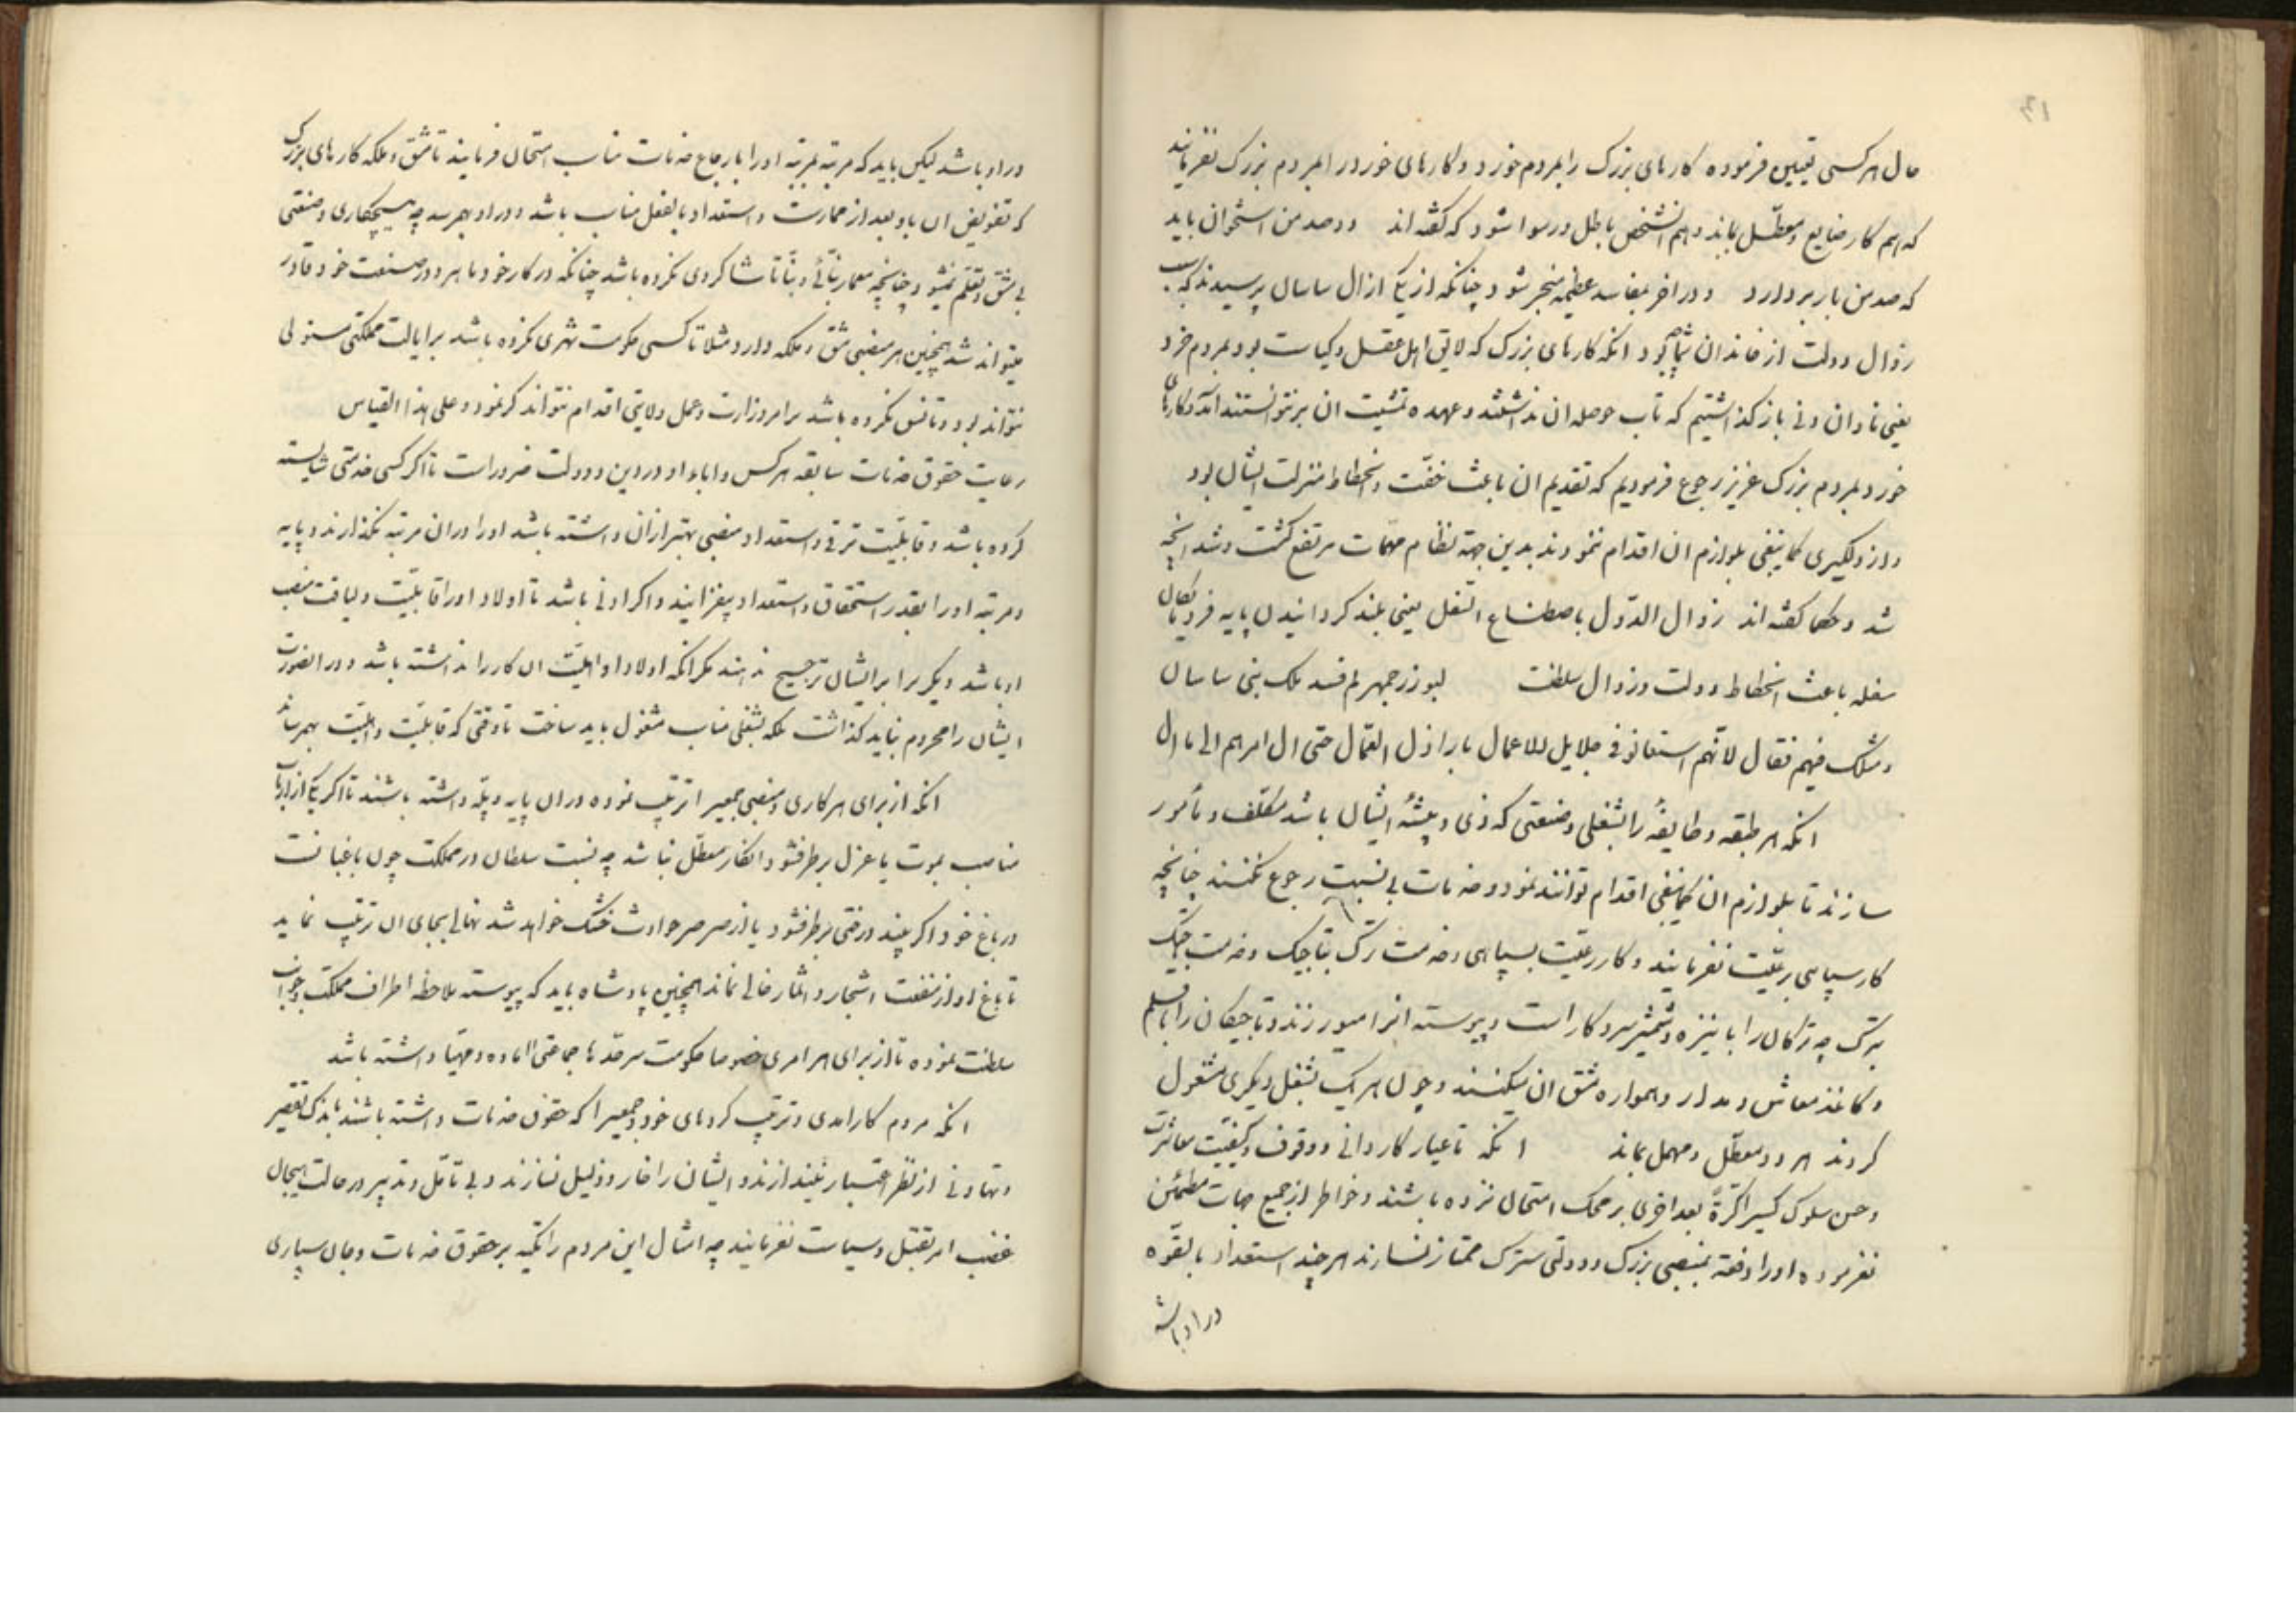 حال هر کسی تعیین فرموده کارهای بزرگ را بمردم خورد و کارهای خورد را بمردم بزرگ نفرمایند
که هم کار ضایع و معطّل بماند و هم انشخص باطل و رسوا شود که گفته‌اند دو صد من استخوان باید
که صد من بار بردارد و در اخر بمفاسد عظیمه منجر شود چنانکه از یکی از ال ساسان پرسیدند که سبب
زوال دولت از خاندان شما چه بود انکه کارهای بزرگ که لایق اهل عقل و کیاست بود بمردم خرد
یعنی نادان و دنی باز گذاشتیم که تاب حوصله ان نداشتند و عهده تمشیت ان بر نتوانستند امد و کارهای
خورد بمردم بزرگ عزیز رجوع فرمودیم که تقدیم ان باعث خفّت و انحطاط منزلت ایشان بود
و از دلگیری کما ینبغی بلوازم ان اقدام ننمودند بدین جهة نظام مهمّات مرتفع گشت و شد انچه
شد و حکما گفته‌اند زوال الدّول باصطناع السّفل یعنی بلند گردانیدن پایه فرومایگان
سفله باعث انحطاط دولت و زوال سلطنت لبوزرجمهر لم فسد ملک بنی ساسان
و مثلک فیهم فقال لانّهم استعانو فی جلایل للاعمال باراذل العمّال حتی ال امرهم الی ما ال
انکه هر طبقه و طایفهٔ را بشغلی و صنعتی که زی و پیشهٔ ایشان باشد مکلّف و مأمور
سازند تا بلوازم ان کما ینبغی اقدام توانند نمود و خدمات بی نسبت رجوع نکنند چنانچه
کار سپاهی برعیّت نفرمایند و کار رعیّت بسپاهی و خدمت ترک بتاجیک و خدمت تاجیک
بترک چه ترکان را با نیزه و شمشیر سر و کار است و پیوسته انرا میورزند و تاجیکان را با قلم
و کاغذ معاش و مدار و همواره مشق ان میکنند و چون هر یک بشغل دیگری مشغول
گردند هر دو معطّل و مهمل بماند انکه تا عیار کاردانی و وقوف و کیفیّت معاشرت
و حسن سلوک کسیرا کرّةً بعد اخری بر محک امتحان نزده باشند و خواطر از جمیع جهات مطمئن
نفرموده او را دفعة بمنصبی بزرگ و دولتی سترک ممتاز نسازند هر چند استعداد بالقوّه
در او باشد
در او باشد لیکن باید که مرتبه بمرتبه او را بارجاع خدمات مناسب امتحان فرمایند تا مشق و ملکه کارهای بزرگ
که تفویض ان باو بعد از ممارست و استعداد بالفعل مناسب باشد در او بهم رسد چه هیچکاری و صنعتی
بی مشق و تعلّم نمیشود چنانچه معمار بنّائی و بنّا تا شاگردی نکرده باشد چنانکه در کار خود ماهر و در صنعت خود قادر
میتواند شد همچنین هر منصبی مشق و ملکه دارد مثلا تا کسی حکومت شهری نکرده باشد بر ایالت مملکتی مستولی
نتواند بود و تا نسق نکرده باشد بر امر وزارت و عمل ولایتی اقدام نتواند کرنمود و علی هذا القیاس
رعایت حقوق خدمات سابقه هر کس و اباء او در دین و دولت ضرور است تا اگر کسی خدمتی شایسته
کرده باشد و قابلیّت ترقی و استعداد منصبی بهتر از ان داشته باشد او را در ان مرتبه نگذارند و پایه
و مرتبه او را بقدر استحقاق و استعداد بیفزایند و اگر ادنی باشد تا اولاد او را قابلیّت و لیاقت منصب
او باشد دیگر برا بر ایشان ترجیح ندهند مگر انکه اولاد او اهلیّت ان کار را نداشته باشد و در انصورت
ایشان را محروم نباید گذاشت بلکه بشغلی مناسب مشغول باید ساخت تا وقتی که قابلیّت و اهلیّت بهم رسانند
انکه از برای هر کاری و منصبی جمعیرا ترتیب نموده در ان پایه و پلّه داشته باشند تا اگر یکی از ارباب
مناصب بموت یا عزل بر طرف شود انکار معطّل نباشد چه نسبت سلطان در مملکت چون باغبانست
در باغ خود اگر بیند درختی بر طرف شود یا از صرصر حوادث خشک خواهد شد نهالی بجای ان ترتیب نماید
تا باغ او از منفعت اشجار و اثمار خالی نماند همچنین پادشاه باید که پیوسته ملاحظه اطراف مملکت و جوانب
سلطنت نموده تا از برای هر امری خصوصا حکومت سرحدّها جماعتی اماده و مهیّا داشته باشد
انکه مردم کارامدی و ترتیب کردهای خود و جمعیرا که حقوق خدمات داشته باشند باندک تقصیر
و تهاونی از نظر اعتبار نیندازند و ایشان را خار و ذلیل نسازند و بی تامّل و تدبیر در حالت هیجان
غضب امر بقتل و سیاست نفرمایند چه امثال این مردم را تکیه بر حقوق خدمات و جان سپاری